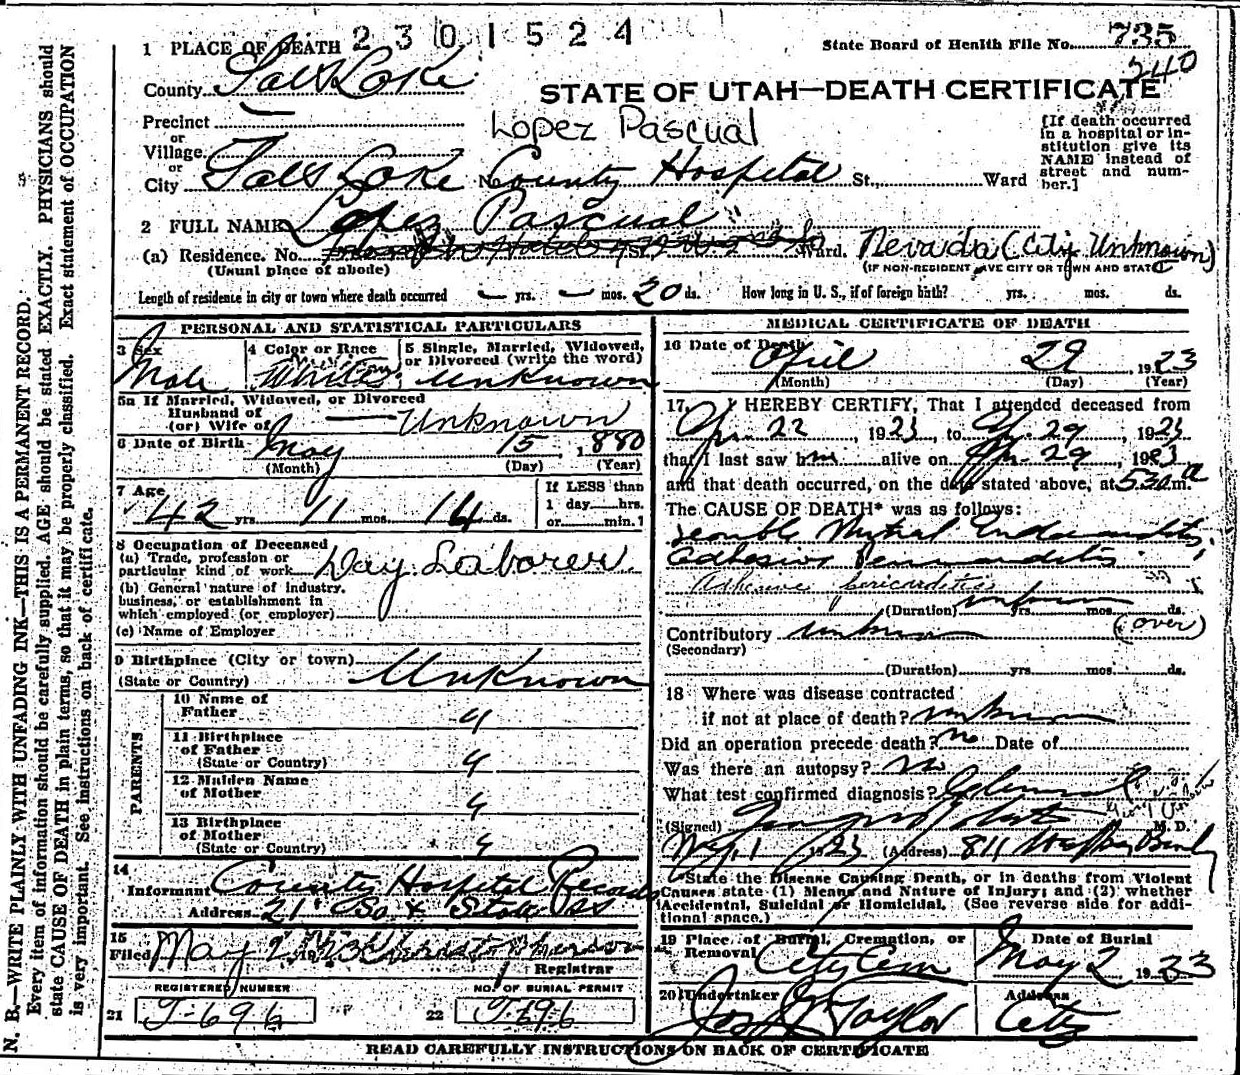 2301524
1 PLACE OF DEATH
State Board of Health File No. 735
240
County Salt Lake
STATE OF UTAH—DEATH CERTIFICATE
Precinct
Lopez Pascual
or
Village
or
City Salt Lake No. County Hospital St., Ward
[If death occurred
in a hospital or in-
stitution give its
NAME instead of
street and num-
ber.]
2 FULL NAME Lopez Pascual
(a) Residence. No. St. Ward. Nevada (City Unknown)
(Usual place of abode)
(IF NON-RESIDENT GIVE CITY OR TOWN AND STATE)
Length of residence in city or town where death occurred — yrs. — mos. 20 ds. How long in U. S., if of foreign birth? yrs. mos. ds.
PERSONAL AND STATISTICAL PARTICULARS
3 Sex
Male
4 Color or Race
White
5 Single, Married, Widowed,
or Divorced (write the word)
Unknown
5a If Married, Widowed, or Divorced
Husband of
(or) Wife of — Unknown
6 Date of Birth May 15, 1880
(Month) (Day) (Year)
7 Age
42 yrs. 11 mos. 14 ds.
If LESS than
1 day hrs.
or min.?
8 Occupation of Deceased
(a) Trade, profession or
particular kind of work Day Laborer.
(b) General nature of industry,
business, or establishment in
which employed (or employer)
(c) Name of Employer
9 Birthplace (City or town)
(State or Country) Unknown
PARENTS
10 Name of
Father "
11 Birthplace
of Father
(State or Country) "
12 Maiden Name
of Mother "
13 Birthplace
of Mother
(State or Country) "
14
Informant County Hospital Records
Address 21 So & State Sts
15
Filed May 2 1923
Registrar
REGISTERED NUMBER
21 T-696
NO. OF BURIAL PERMIT
22 T-696
MEDICAL CERTIFICATE OF DEATH
16 Date of Death
April 29, 1923
(Month) (Day) (Year)
17. I HEREBY CERTIFY, That I attended deceased from
Apr. 22, 1923, to Apr. 29, 1923
that I last saw him alive on Apr. 29, 1923
and that death occurred, on the date stated above, at 530 a m.
The CAUSE OF DEATH* was as follows:
Double Mitral Endocarditis,
Adhesive Pericarditis
Adhesive pericarditis
(Duration) unknown yrs. mos. ds.
Contributory unknown (over)
(Secondary)
(Duration) yrs. mos. ds.
18 Where was disease contracted
if not at place of death? unknown
Did an operation precede death? no Date of
Was there an autopsy? no
What test confirmed diagnosis?
(Signed) M. D.
May 1 1923 (Address) 811
*State the Disease Causing Death, or in deaths from Violent
Causes state (1) Means and Nature of Injury; and (2) whether
Accidental, Suicidal or Homicidal. (See reverse side for addi-
tional space.)
19 Place of Burial, Cremation, or
Removal City Cem
Date of Burial
May 2 1923
20 Undertaker
Jos. Taylor
Address
City
READ CAREFULLY INSTRUCTIONS ON BACK OF CERTIFICATE
N. B.—WRITE PLAINLY WITH UNFADING INK—THIS IS A PERMANENT RECORD.
Every item of information should be carefully supplied. AGE should be stated EXACTLY. PHYSICIANS should
state CAUSE OF DEATH in plain terms, so that it may be properly classified. Exact statement of OCCUPATION
is very important. See instructions on back of certificate.